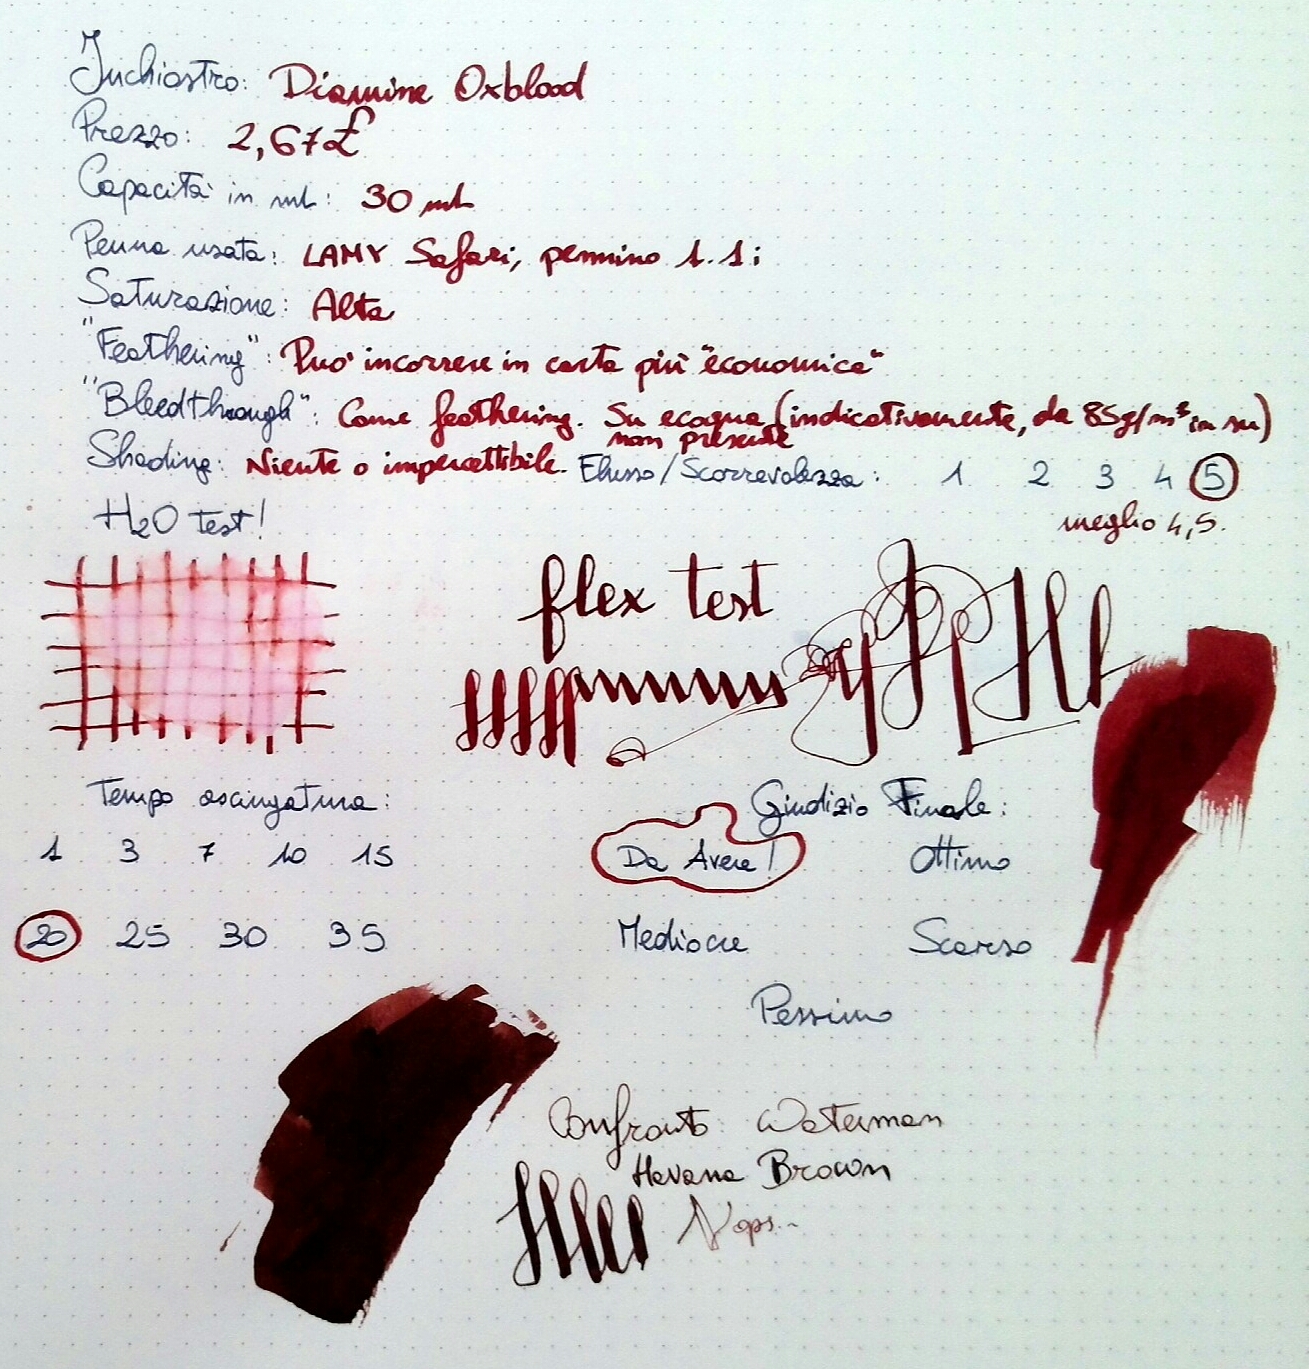 Inchiostro: Diamine Oxblood
Prezzo: 2,67£
Capacità in ml: 30 ml
Penna usata: LAMY Safari, pennino 1.1i
Saturazione: Alta
"Feathering": Può incorrere in carta più "economica"
"Bleedthrough": Come feathering. Su ecoqua (indicativamente, da 85g/m² in su)
non presente
Shading: Niente o impercettibile. Flusso/Scorrevolezza: 1 2 3 4 5
meglio 4,5.
H2O test!
flex test
Tempo asciugatura:
1 3 7 10 15
20 25 30 35
Giudizio Finale:
Da Avere! Ottimo
Mediocre Scarso
Pessimo
Confronto Waterman
Havana Brown
Nops...